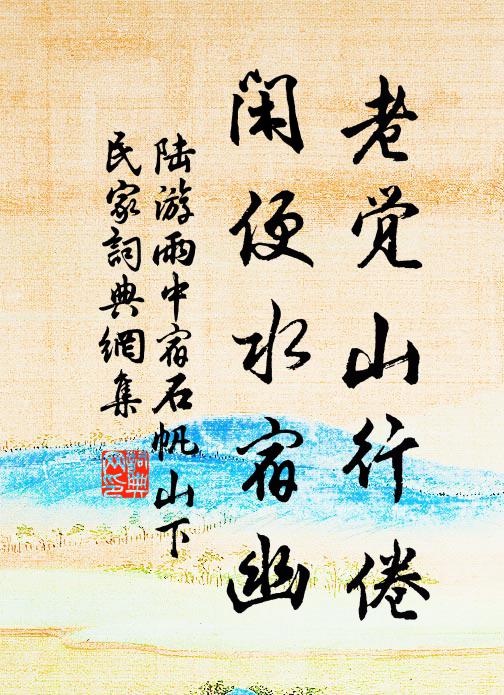 老觉山行倦
闲便水宿幽
陆游雨中宿石帆山下
民家詞典網集